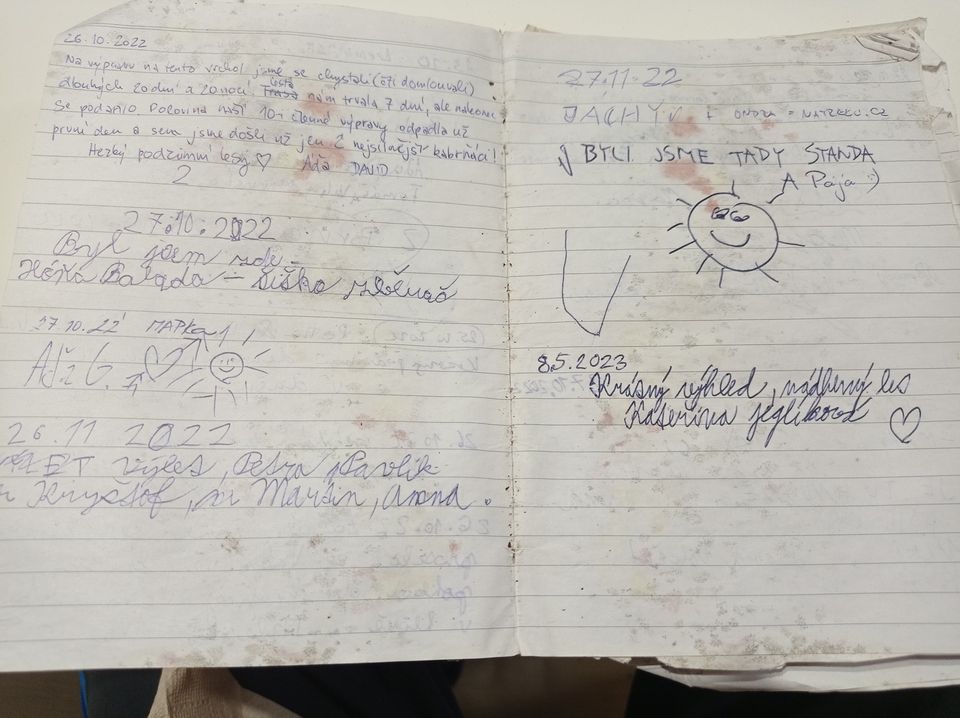 26.10.2022
Na výpravu na tento vrchol jsme se chystali (či domlouvali)
dlouhých 20 dní a 20 nocí. cesta nám trvala 7 dní, ale nakonec
se podařilo. Polovina naší 10-ti členné výpravy odpadla už
první den a sem jsme došli už jen 2 nejsilnější kabrňáci!
Hezký podzimní lesy ♡ Áďa DAVID
2
27.10.2022
Byl jsem zde -
Balada - Šiška
27.10.22 MAPKA
G.
26.11 2022
výlet, Petra, Pavlík
Kryštof, Martin, Anna.
27.11.22
JÁCHYM + ONDRA = NATREKU.CZ
BYLI JSME TADY STANDA
A Pája :)
8.5.2023
Krásný výhled, nádherný les
Kateřina ♡